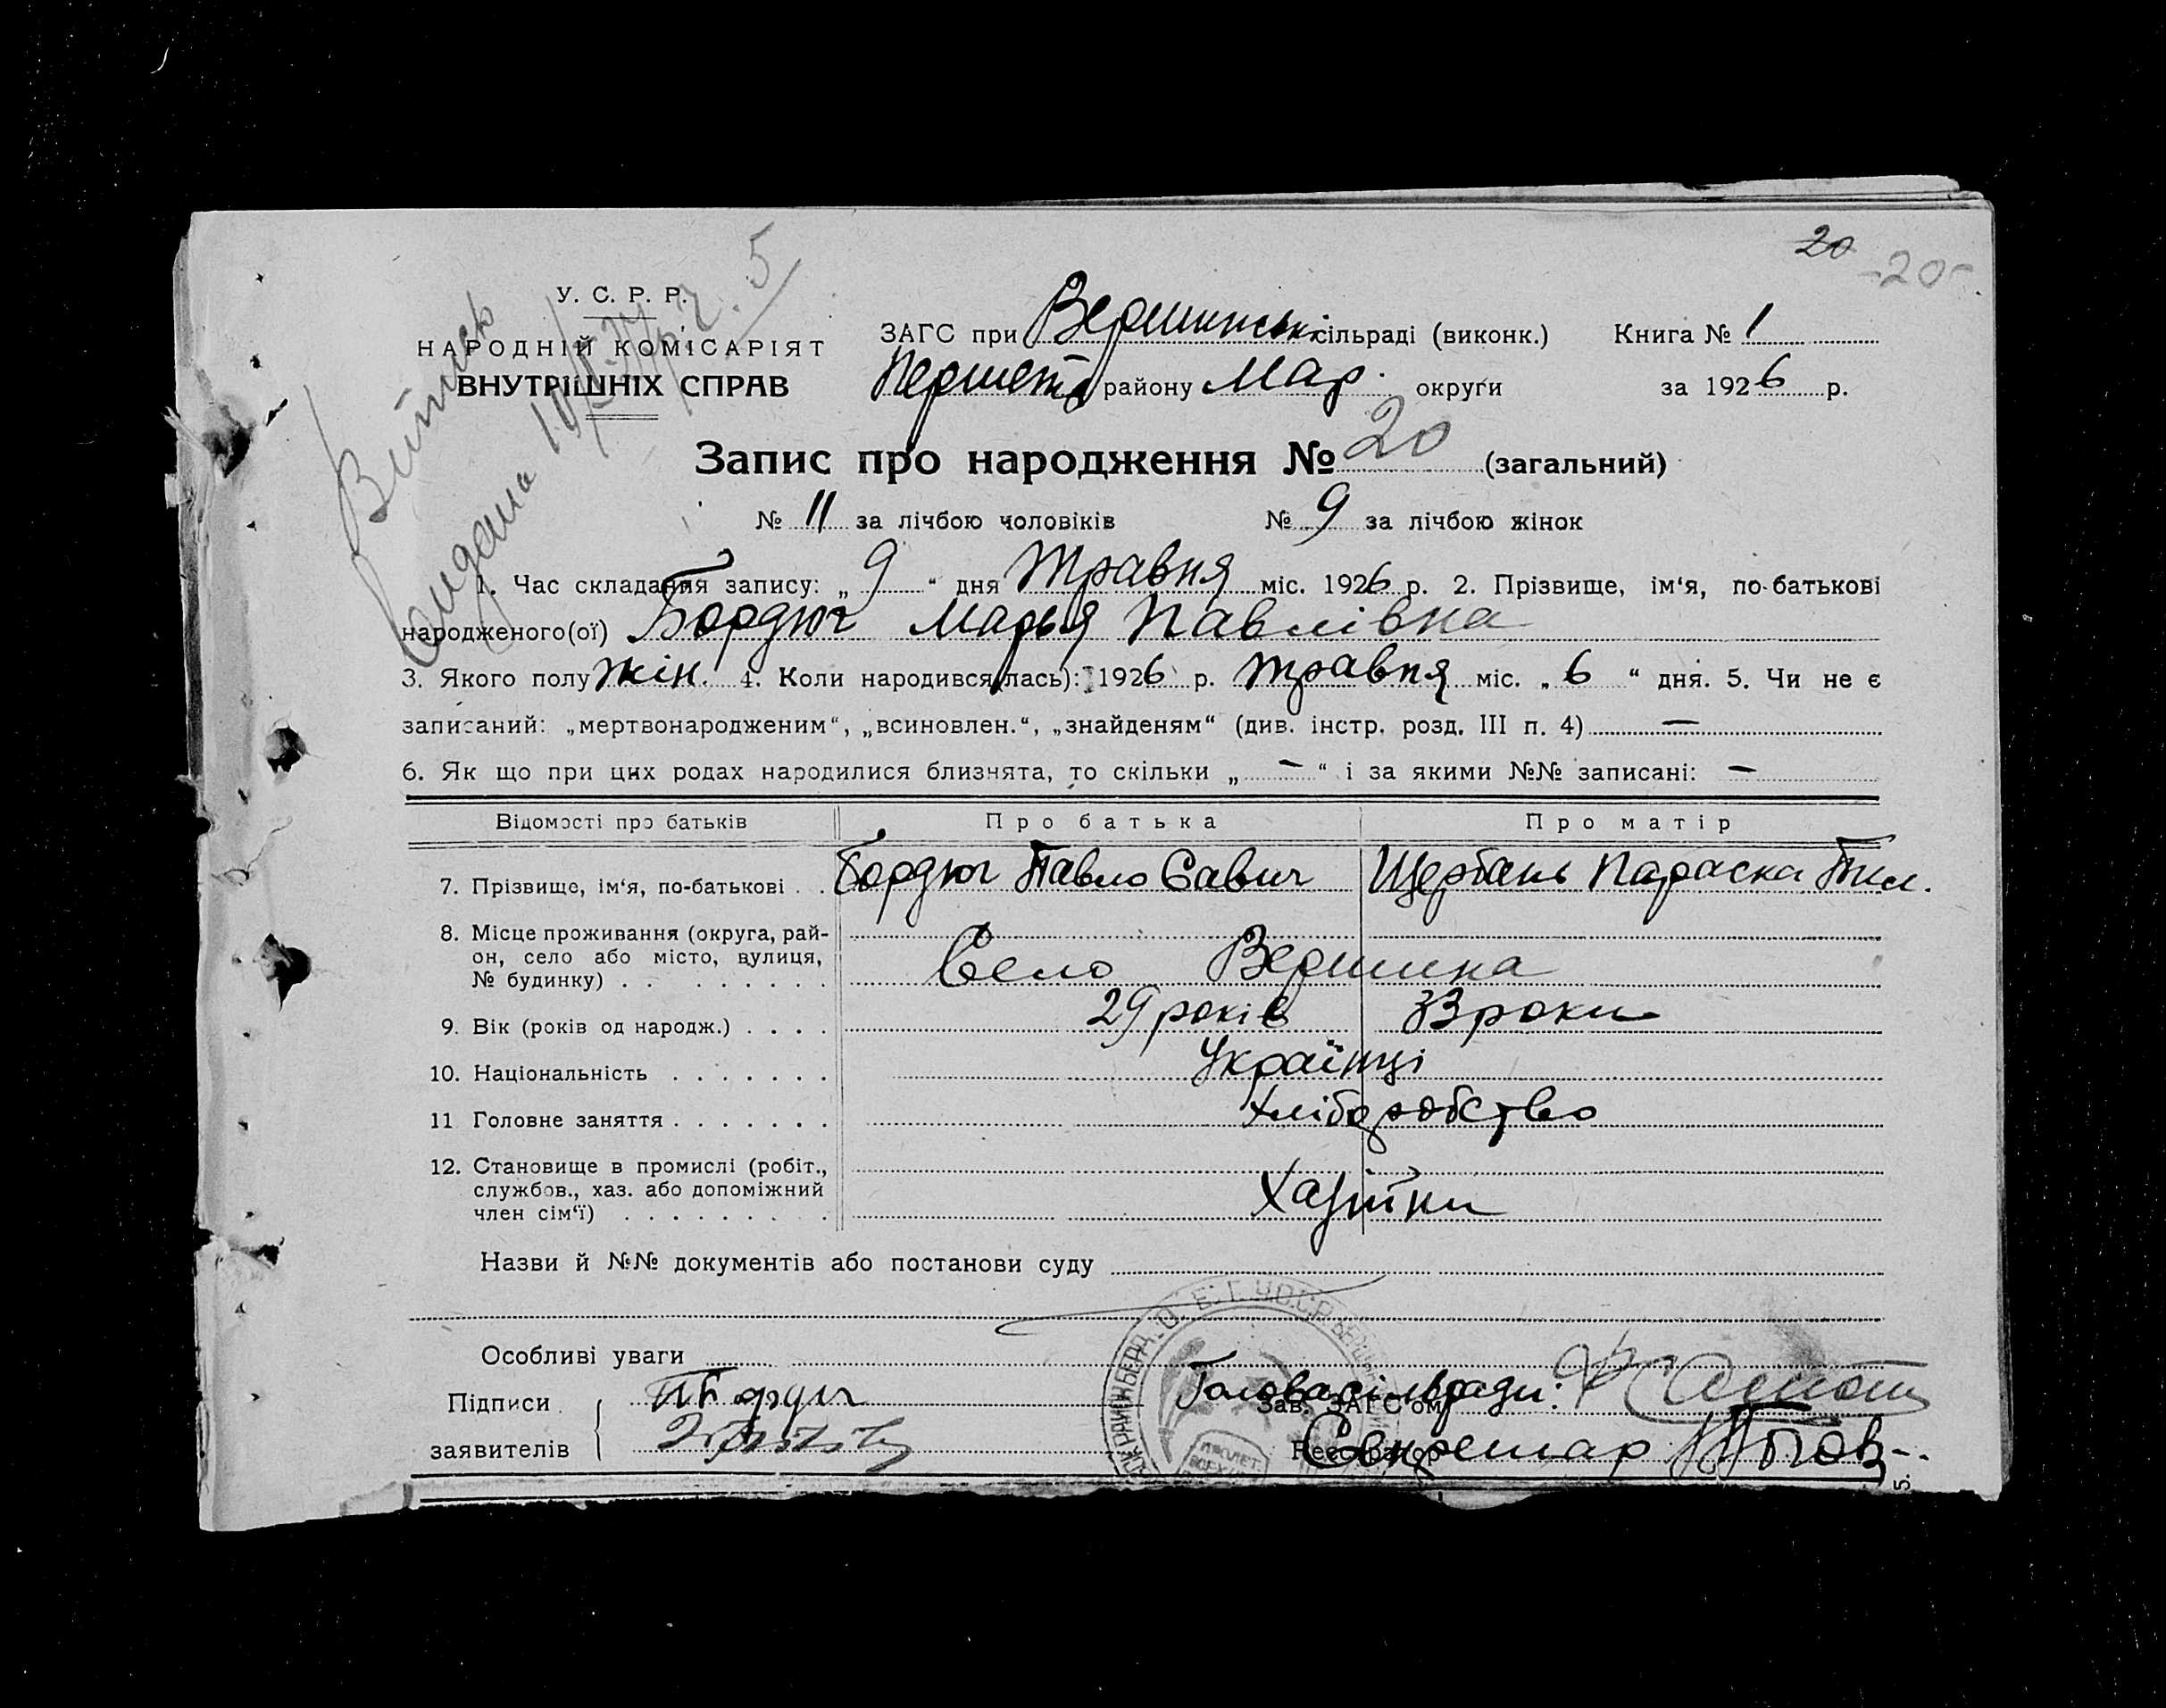 20 -20-
У. С. Р. Р.
НАРОДНІЙ КОМІСАРІЯТ
ВНУТРІШНІХ СПРАВ
Витпись
видана
5
ЗАГС при Вершинські сільраді (виконк.) Книга № 1
Першетр району Мар. округи за 1926 р.
Запис про народження № 20 (загальний)
№ 11 за лічбою чоловіків № 9 за лічбою жінок
1. Час складання запису: „ 9 “ дня травня міс. 1926 р. 2. Прізвище, ім‘я, по-батькові
народженого(ої) Бордюг Марья Павлівна
3. Якого полу жін. 4. Коли народився(лась): 1926 р. травня міс. „ 6 “ дня. 5. Чи не є
записаний: „мертвонародженим“, „всиновлен.“, „знайденям“ (див. інстр. розд. III п. 4) —
6. Як що при цих родах народилися близнята, то скільки „ — “ і за якими №№ записані: —
Відомості про батьків Про батька Про матір
7. Прізвище, ім‘я, по-батькові . . Бордюг Павло Савич Щербань Параска Пил.
8. Місце проживання (округа, рай-
он, село або місто, вулиця,
№ будинку) . . . . . . . . . Село Вершина
9. Вік (років од народж.) . . . . 29 років 33 роки
10. Національність . . . . . . . Українці
11 Головне заняття . . . . . . . Хліборобство
12. Становище в промислі (робіт.,
службов., хаз. або допоміжний
член сім‘ї) . . . . . . . . . Хазяїни
Назви й №№ документів або постанови суду
Особливі уваги
Підписи П Бордюг Голова сільради:
Зав. ЗАГС'ом
заявителів Секретар
Реєстратор